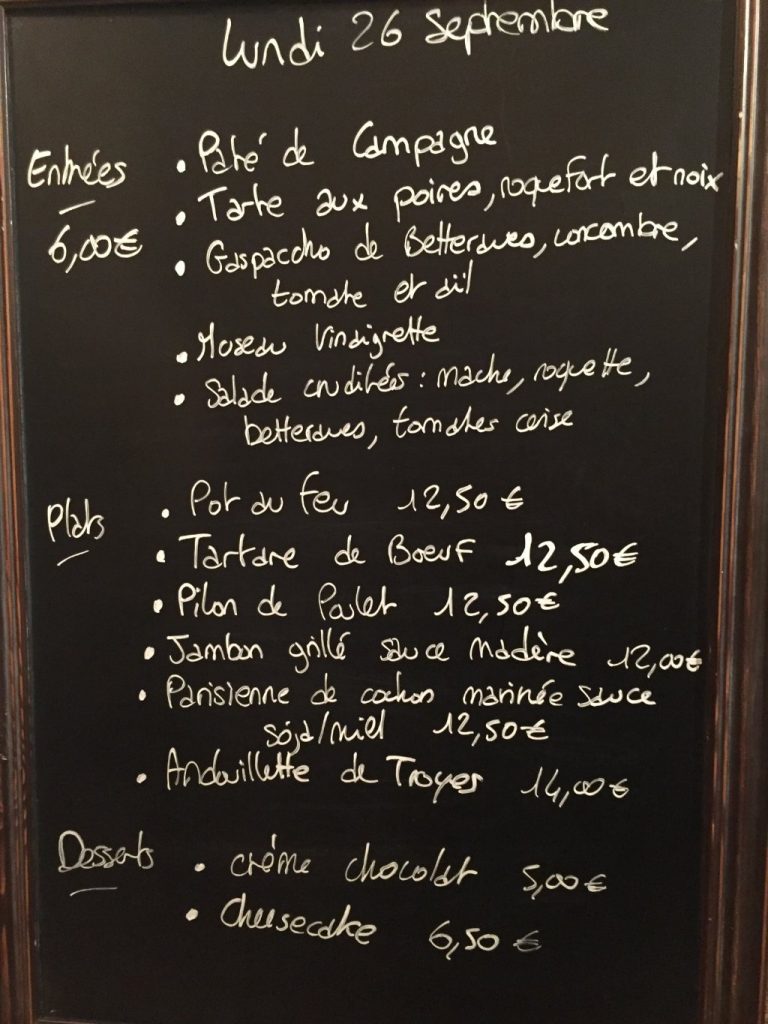 Lundi 26 Septembre
Entrées
6,00€
• Pâté de Campagne
• Tarte aux poires, roquefort et noix
• Gaspaccho de Betteraves, concombre,
tomate et ail
• Museau Vinaigrette
• Salade cruditées : mache, roquette,
betteraves, tomates cerise
Plats
• Pot au feu 12,50 €
• Tartare de Boeuf 12,50€
• Pilon de Poulet 12,50€
• Jambon grillé sauce madère 12,00€
• Parisienne de cochon marinée sauce
sója/miel 12,50€
• Andouillette de Troyes 14,00€
Desserts
• crème chocolat 5,00€
• Cheesecake 6,50 €